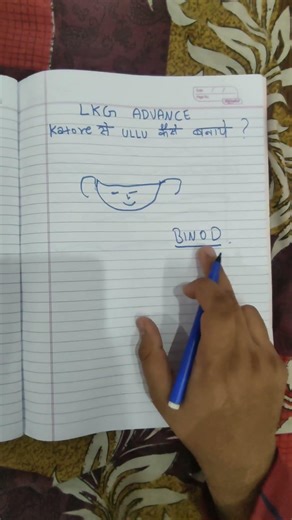 LKG ADVANCE
Katore से ULLU कैसे बनाये ?
BINOD.